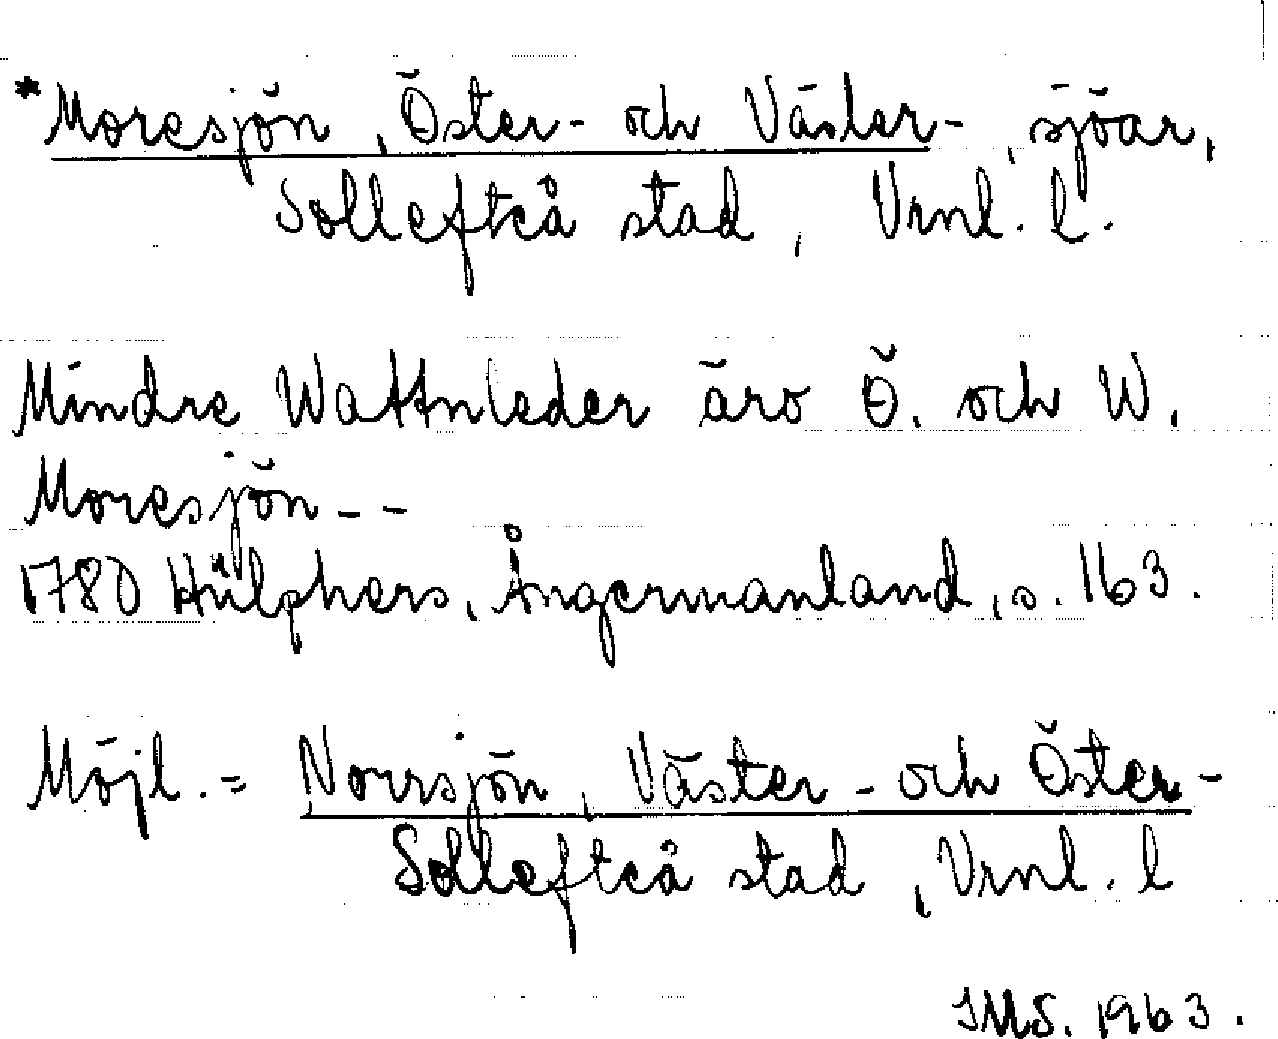 *Moresjön, Öster- och Väster-, sjöar,
Sollefteå stad, Vrnl. l.
Mindre Wattnleder äro Ö. och W.
Moresjön--
1780 Hülphers, Ångermanland, s. 163.
Möjl. = Norrsjön, Väster- och Öster-
Sollefteå stad, Vrnl. l
IMS. 1963.